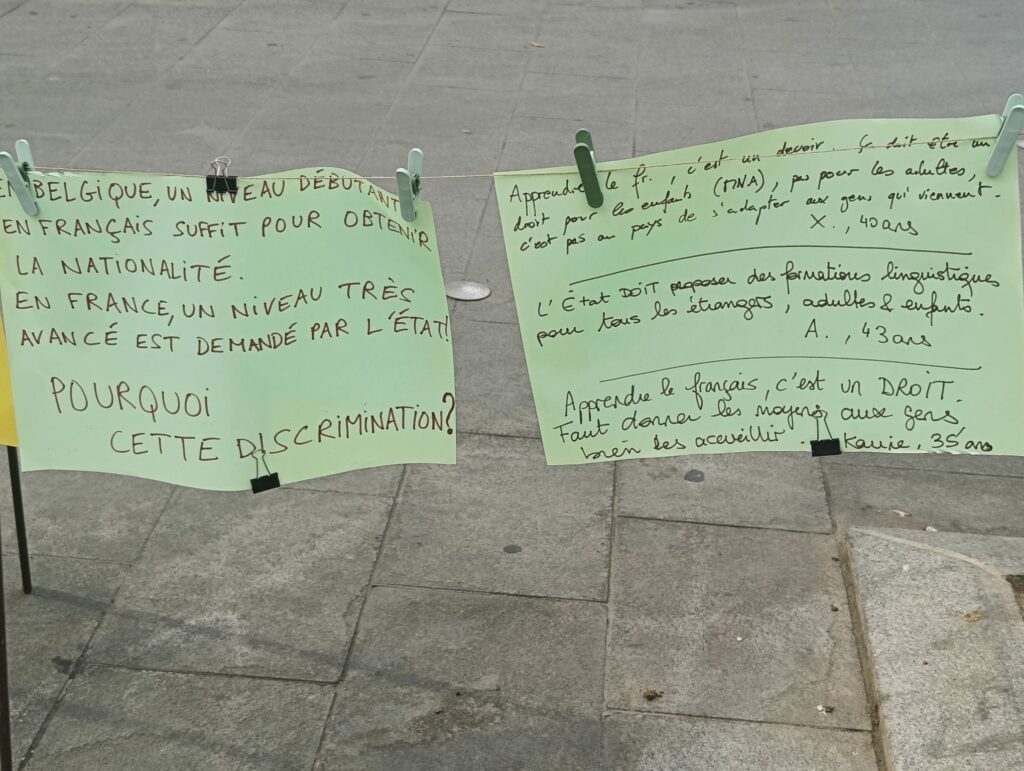 EN BELGIQUE, UN NIVEAU DÉBUTANT
EN FRANÇAIS SUFFIT POUR OBTENIR
LA NATIONALITÉ.
EN FRANCE, UN NIVEAU TRÈS
AVANCÉ EST DEMANDÉ PAR L'ÉTAT!
POURQUOI
CETTE DISCRIMINATION?
Apprendre le fr., c'est un devoir. Ça doit être un
droit pour les enfants (MNA), pas pour les adultes,
c'est pas au pays de s'adapter aux gens qui viennent.
X., 40 ans
L'État DOIT proposer des formations linguistiques
pour tous les étrangers, adultes & enfants.
A., 43 ans
Apprendre le français, c'est un DROIT.
Faut donner les moyens aux gens
bien les accueillir. 35 ans